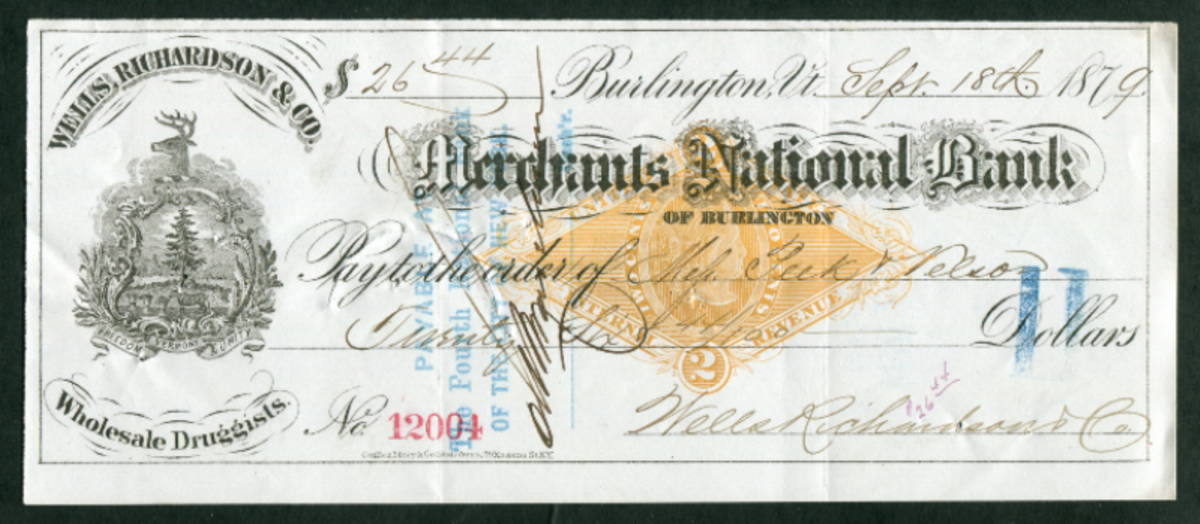 WELLS, RICHARDSON & CO.
$ 26 44
Burlington, Vt. Sept. 18th 1879
Merchants National Bank
OF BURLINGTON
Pay to the order of Peek & Nelson
Twenty Six 44/100 Dollars
UNITED STATES
INTERNAL REVENUE
2
FREEDOM VERMONT & UNITY
Wholesale Druggists.
No. 12004
PAYABLE AT
The Fourth National Bank
OF THE CITY OF NEW YORK
26 44
Wells Richardson & Co